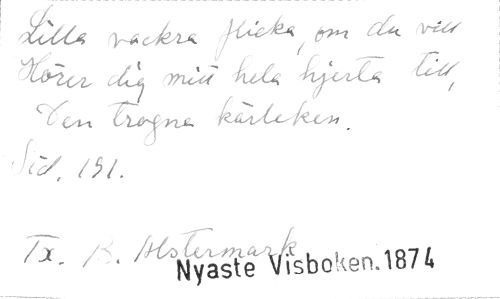 Lilla vackra flicka, om du vill
Hörer dig mitt hela hjerta till,
Den trogna kärleken.
Sid. 191.
Tx. B. Alstermark
Nyaste Visboken. 1874